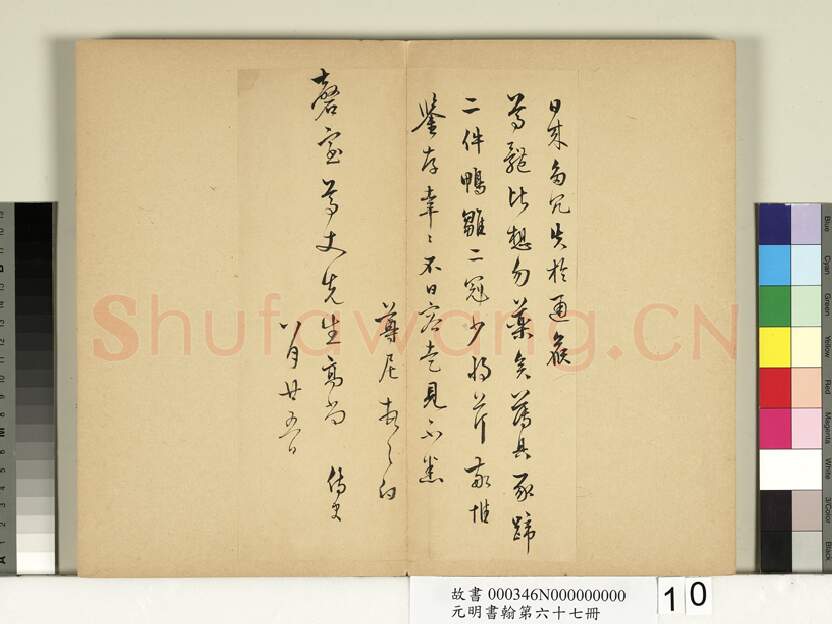 日來多冗失於通候
尊體比想勿藥矣薄具豕蹄
二件鴨雛二冠少將芹敬惟
鑒存幸〻不日容走見不悉
尊尼
磬室尊丈先生
八月廿五日
Shufawang.CN
故書 000346N000000000
元明書翰第六十七冊
10
Blue
Cyan
Green
Yellow
Red
Magenta
White
3/Color
Black